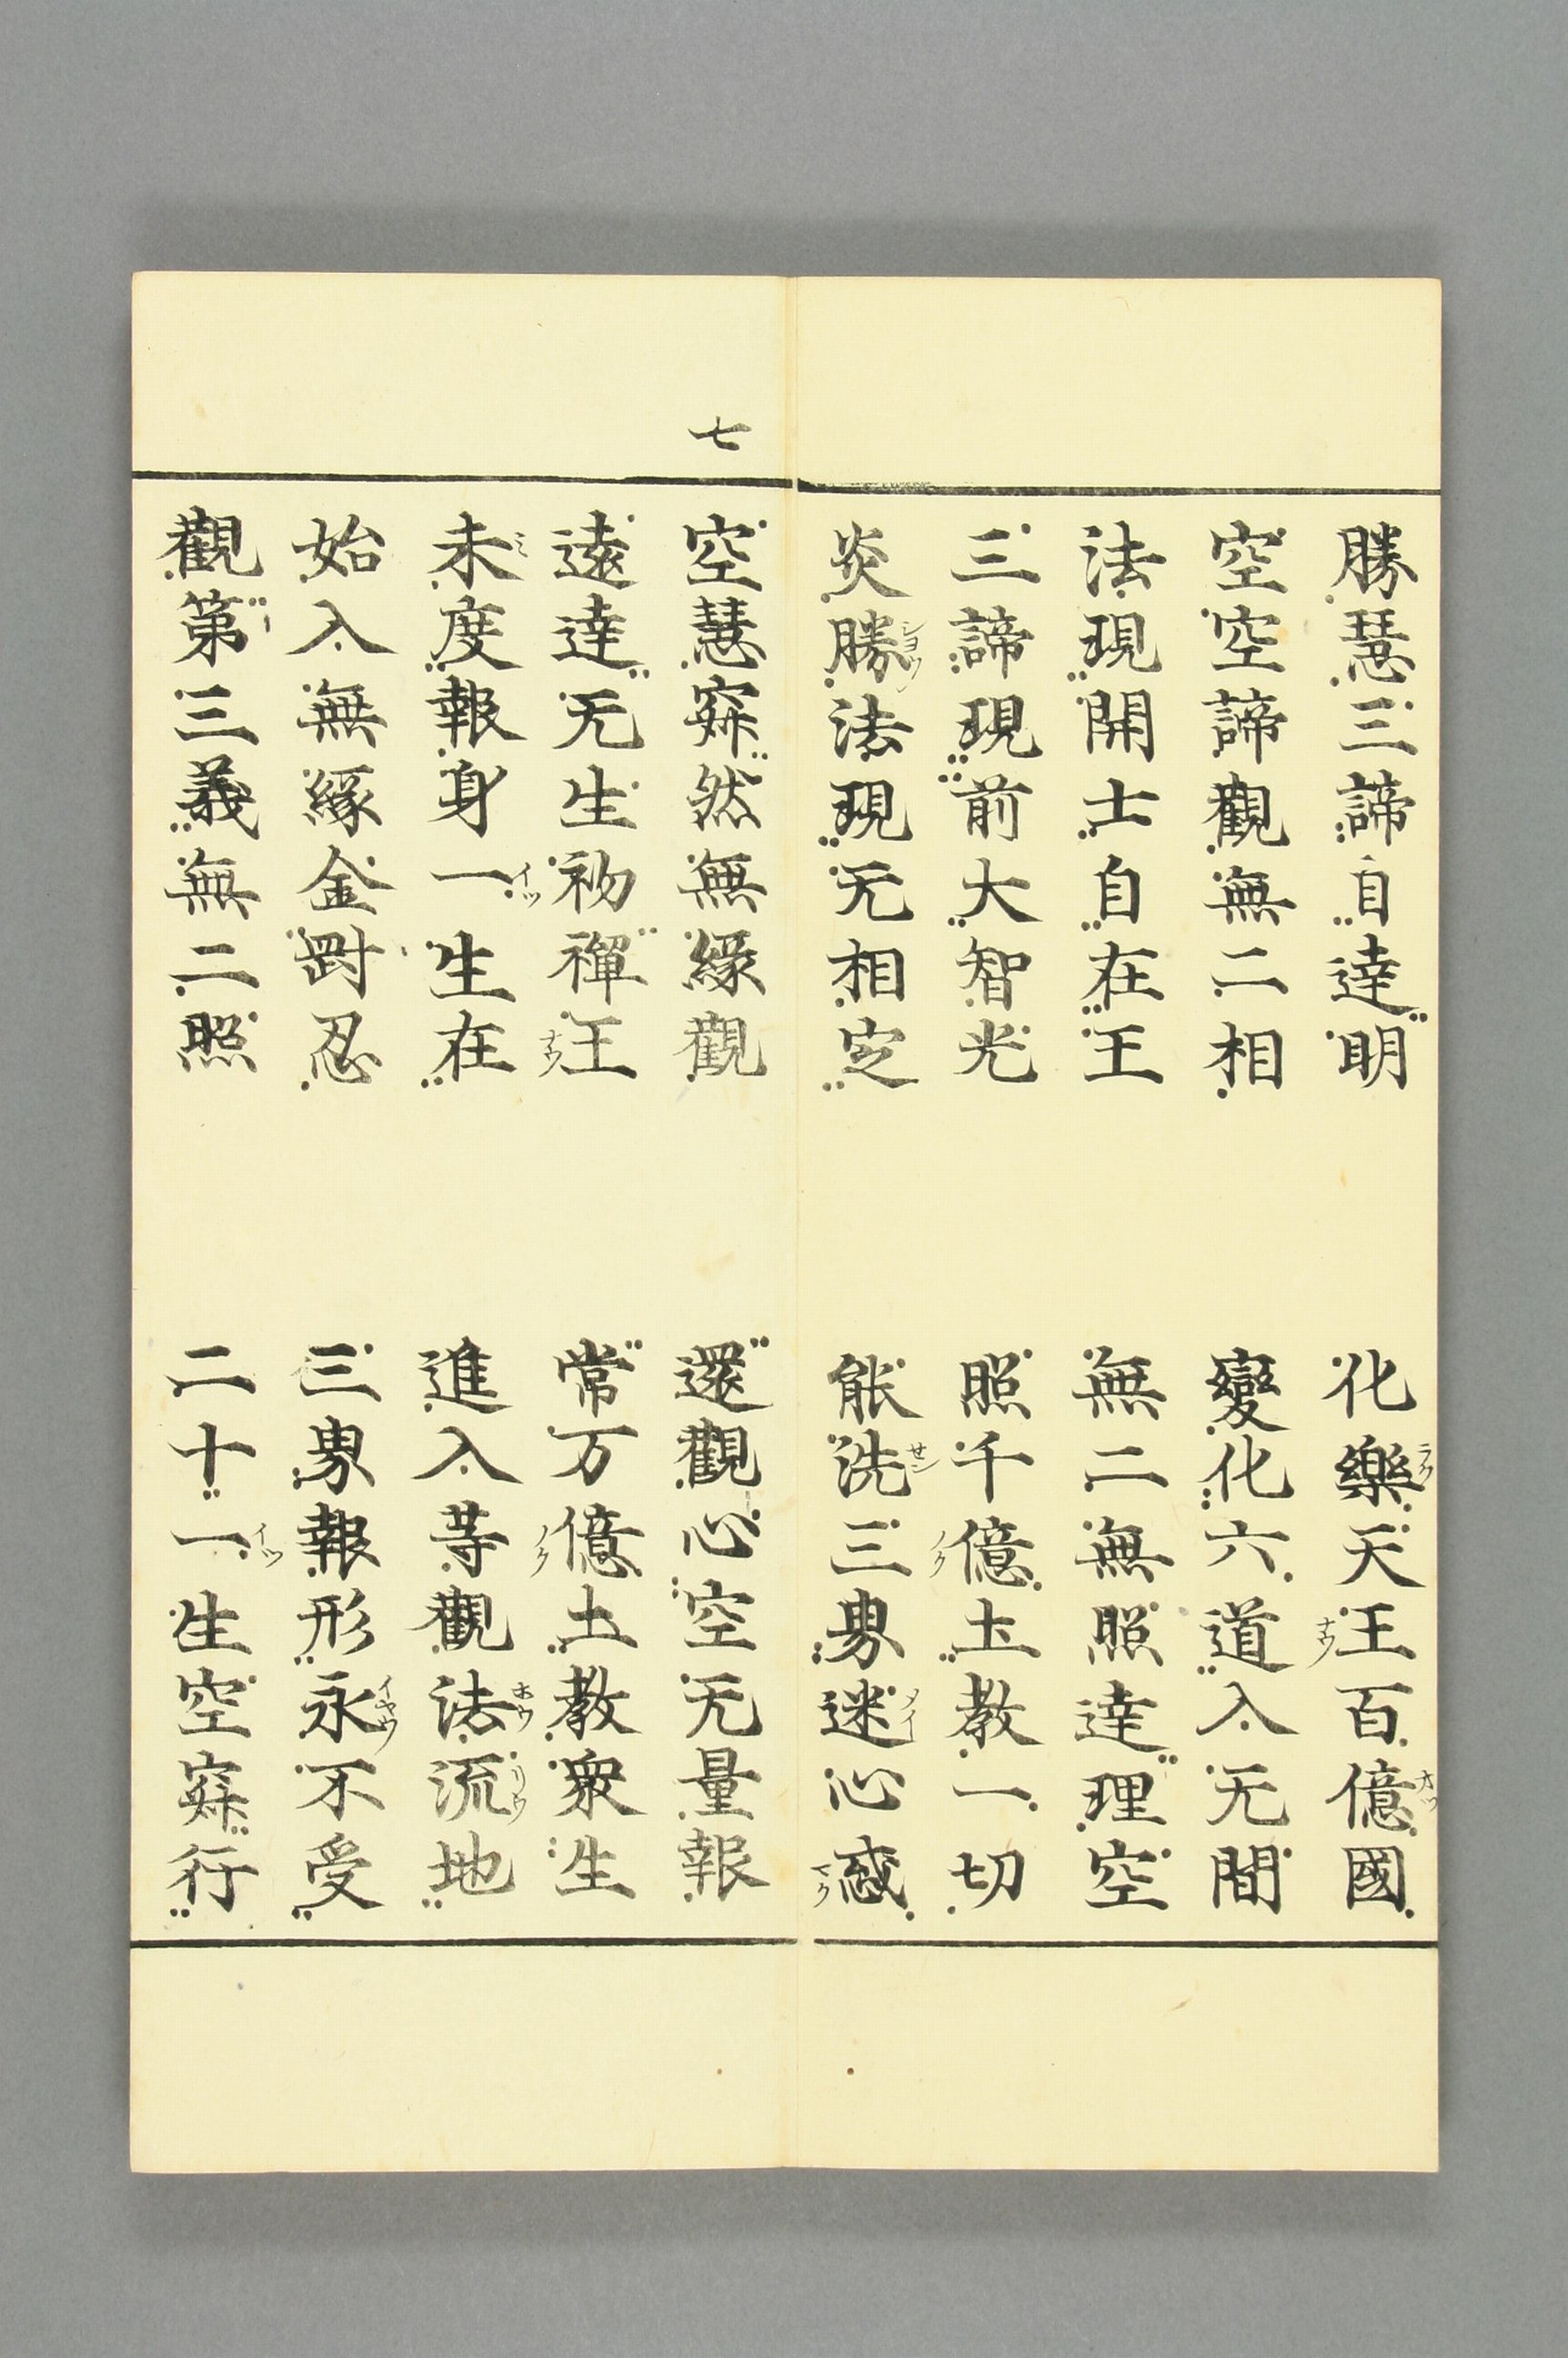 勝慧三諦自達明　化樂天王百億國
空空諦觀無二相　變化六道入无間
法現開士自在王　無二無照達理空
三諦現前大智光　照千億土教一切
炎勝法現无相定　能洗三界迷心惑
七
空慧寂然無緣觀　還觀心空无量報
遠達无生初禪王　常万億土教衆生
未度報身一生在　進入等觀法流地
始入無緣金剛忍　三界報形永不受
觀第三義無二照　二十一生空寂行